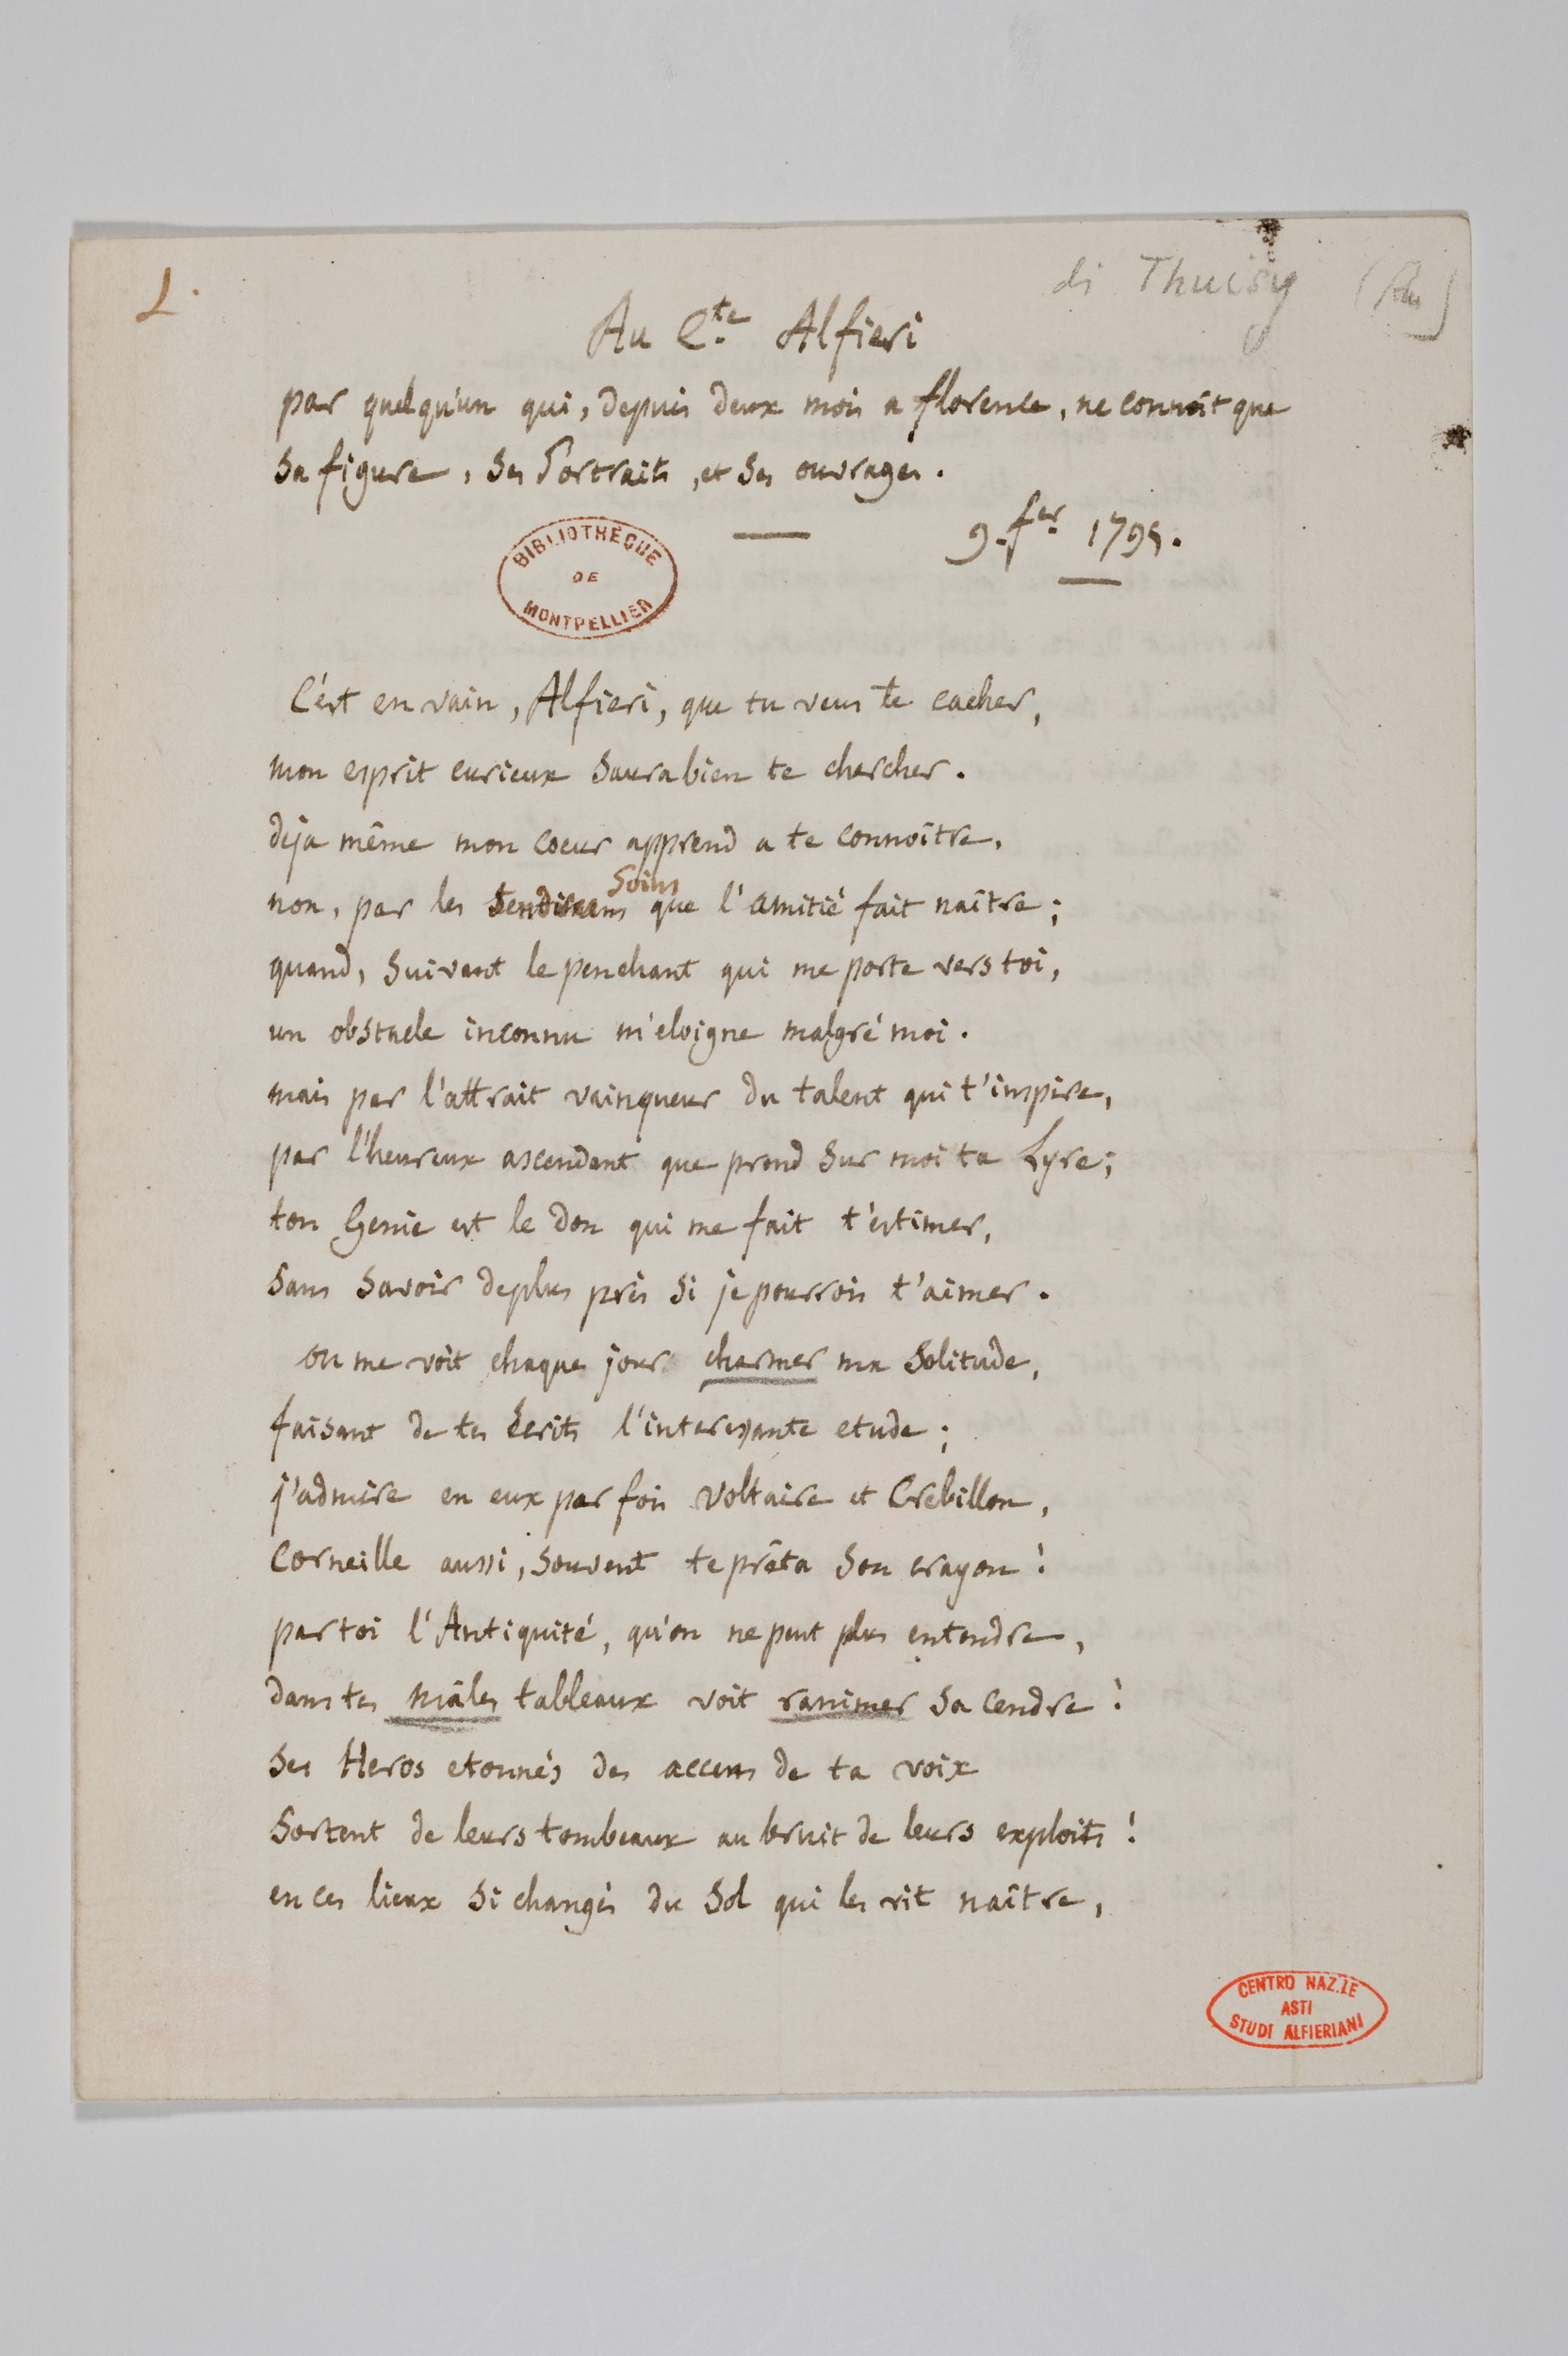 1.
di Thuisy
Au Cte. Alfieri
par quelqu'un qui, depuis deux mois a florence, ne connoît que
sa figure, ses Portraits, et ses ouvrages.
9. fer. 1795.
BIBLIOTHÈQUE
DE
MONTPELLIER
C'est en vain, Alfieri, que tu veus te cacher,
mon esprit curieux saura bien te chercher.
deja même mon coeur apprend a te connoître,
soins
non, par les que l'amitié fait naître;
quand, suivant le penchant qui me porte vers toi,
un obstacle inconnu m'eloigne malgré moi.
mais par l'attrait vainqueur du talent qui t'inspire,
par l'heureux ascendant que prend sur moi ta Lyre;
ton Genie est le don qui me fait t'estimer,
sans savoir de plus près si je pourrois t'aimer.
on me voit chaque jour charmer ma solitude,
faisant de tes écrits l'interessante etude;
j'admire en eux par fois Voltaire et Crebillon,
Corneille aussi, souvent te prêta son crayon!
par toi l'Antiquité, qu'on ne peut plus entendre,
dans tes mâles tableaux voit ranimer sa cendre!
ses Heros etonnés des accens de ta voix
sortent de leurs tombeaux au bruit de leurs exploits!
en ces lieux si changés du sol qui les vit naître,
CENTRO NAZ.LE
ASTI
STUDI ALFIERIANI